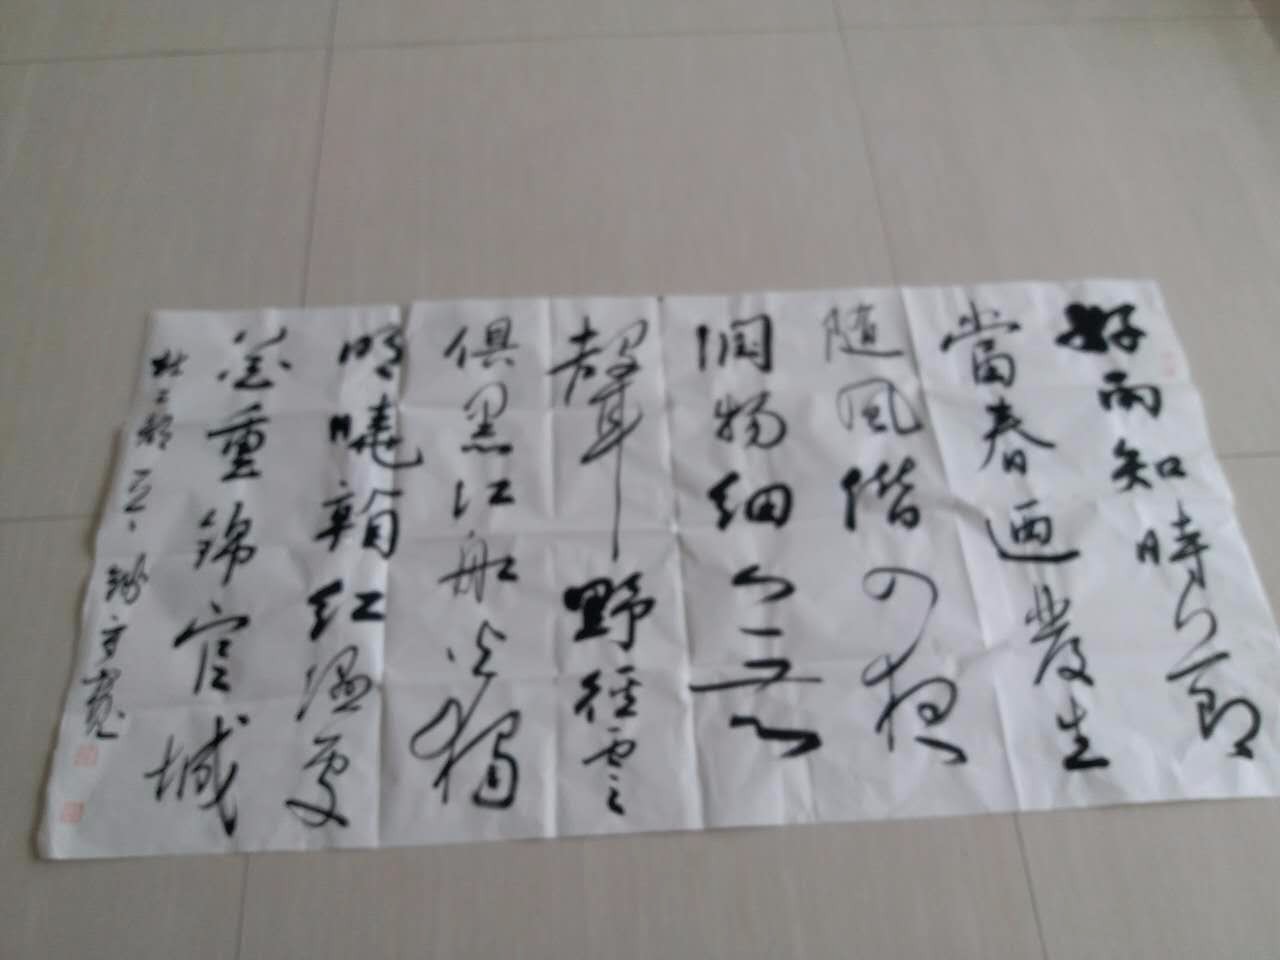 好雨知時節
當春迺發生
隨風潛入夜
潤物細無
聲野徑雲
俱黑江船火獨
明曉看紅濕處
花重錦官城
杜工部